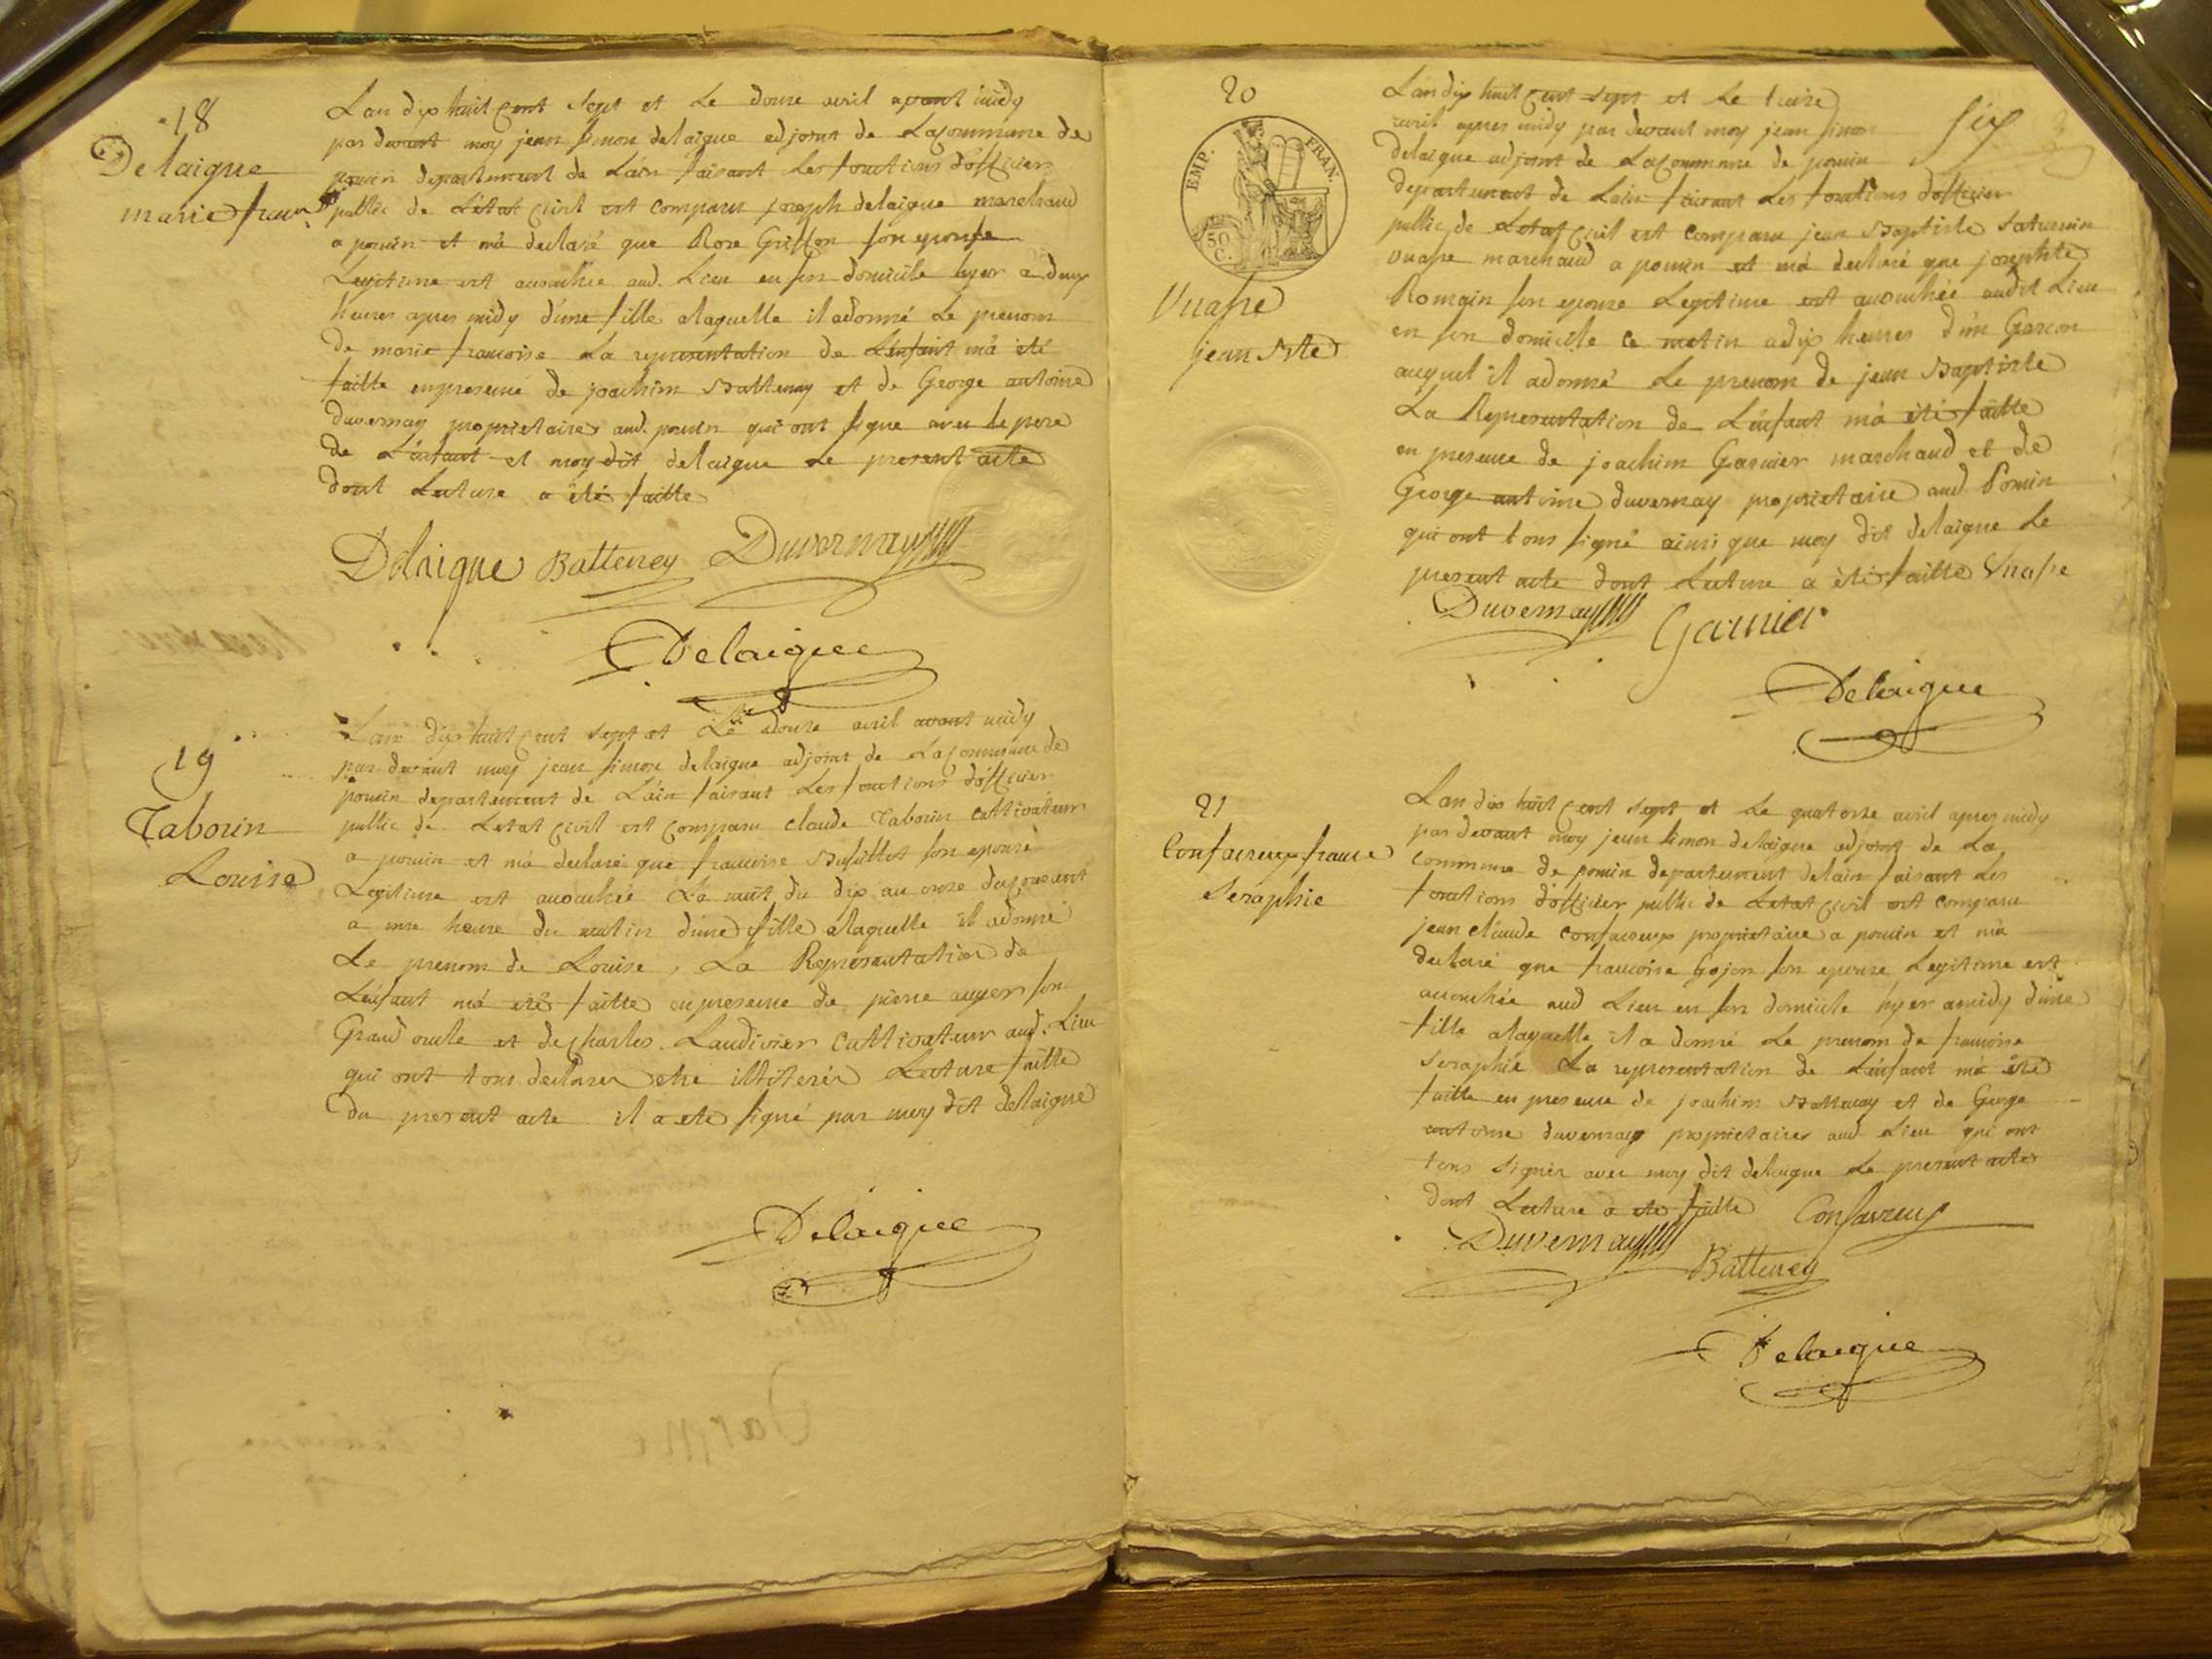 18
Delaigue
marie fran.
Lan dix huit cent sept et Le douze avril avant midy
par devant moy jean simon delaigue adjoint de Lacommune de
poncin departement de Lain faisant Les fonctions d'officier
public de L'etat civil est comparu joseph delaigue marchand
a poncin et m'a declaré que Rose Griffon son epouse
Legitime est accouchée aud. Lieu en son domicile hyer a deux
heures apres midy d'une fille alaquelle il adonné Le prenom
de marie francoise La representation de L'enfant m'a été
faitte enpresence de joachim Batteney et de George antoine
duvernay proprietaires aud. poncin qui ont signe avec le pere
de L'enfant et moy dit delaigue Le present acte
dont Lecture a été faitte
Delaigue Batteney Duvernay
Delaigue
19
Tabouin
Louise
Lan dix huit cent sept et Le douze avril avant midy
par devant moy jean simon delaigue adjoint de Lacommune de
poncin departement de L'ain faisant Les fonctions d'officier
public de Letat civil est comparu claude Tabouin cultivateur
a poncin et m'a declaré que francoise son epouse
Legitime est accouchée La nuit du dix au onze ducourant
a une heure du matin d'une fille alaquelle il adonné
Le prenom de Louise, La Representation de
L'enfant m'a été faitte enpresence de pierre auger son
Grand oncle et de charles Laudivier cultivateur aud. Lieu
qui ont tous declarer etre illiterés Lecture faitte
du present acte il a ete signé par moy dit delaigue
Delaigue
20
EMP. FRAN.
50 C.
Vuase
jean Bte
six
Lan dix huit cent sept et Le treize
avril apres midy par devant moy jean simon
delaigue adjoint de Lacommune de poncin
departement de Lain faisant Les fonctions d'officier
public de Letat civil est comparu jean Baptiste Saturnin
vuase marchand a poncin et m'a declaré que josephte
Romain son epouse Legitime est accouchée audit Lieu
en son domicile ce matin adix heures d'un Garcon
auquel il adonné Le prenom de jean Baptiste
La Representation de L'enfant m'a été faitte
en presence de joachim Garnier marchand et de
George antoine duvernay proprietaire aud Poncin
qui ont tous signé ainsi que moy dit delaigue Le
present acte dont Lecture a été faitte Vuase
Duvernay Garnier
Delaigue
21
Confavreux franse
Seraphie
Lan dix huit cent sept et Le quatorze avril apres midy
par devant moy jean simon delaigue adjoint de La
commune de poncin departement delain faisant Les
fonctions d'officier public de Letat civil est comparu
jean claude confavreux proprietaire a poncin et m'a
declaré que francoise Gojon son epouse Legitime est
accouchée aud Lieu en son domicile hyer amidy d'une
fille alaquelle il a donné Le prenom de francoise
seraphie La representation de L'enfant m'a été
faitte en presence de joachim Batteney et de George
antoine duvernay proprietaires aud Lieu qui ont
tous signer avec moy dit delaigue Le present acte
dont Lecture a ete faitte Confavreux
Duvernay Batteney
Delaigue